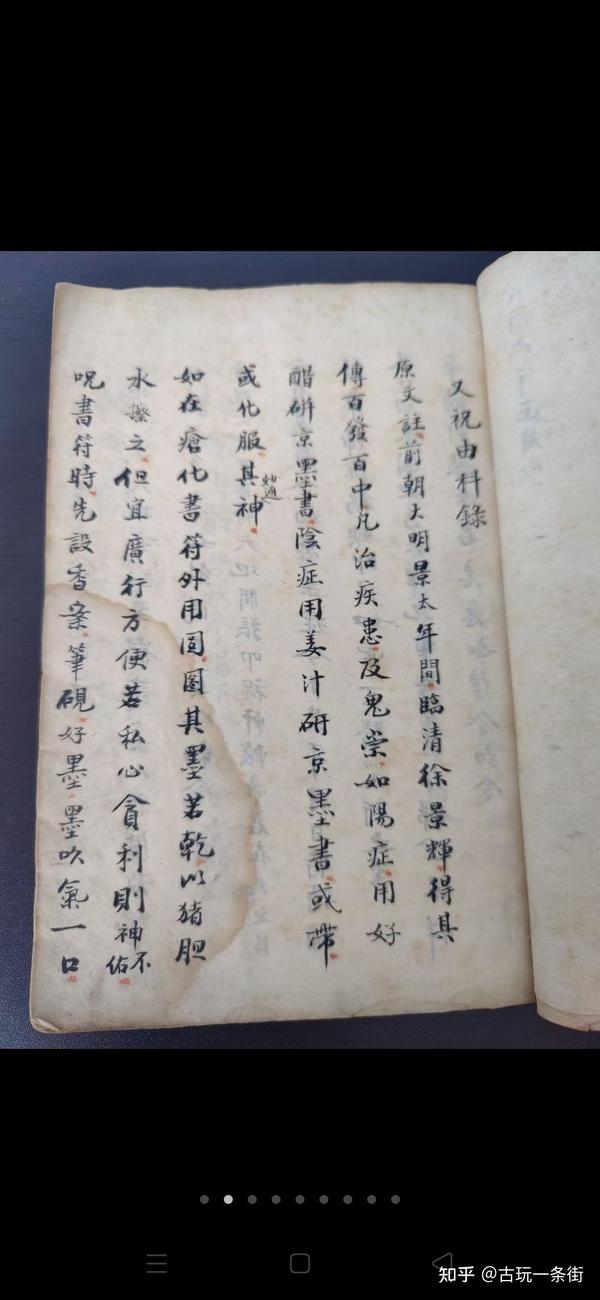 又祝由科錄
原文註前朝大明景太年間臨清徐景輝得其
傳百發百中凡治疾患及鬼祟如陽症用好
醋研京墨書陰症用姜汁研京墨書或帶
或化服其神妙通
如在瘡化書符外用圊圈其墨若乾以猪胆
水擦之但宜廣行方便若私心貪利則神不佑
呪書符時先設香案筆硯好墨墨吹氣一口
知乎 @古玩一条街